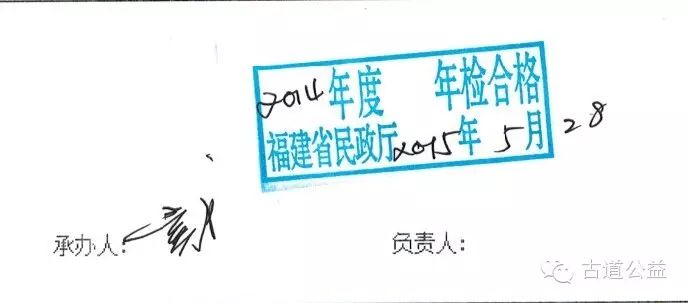 2014年度 年检合格
福建省民政厅2015年5月28
承办人：
负责人：
古道公益